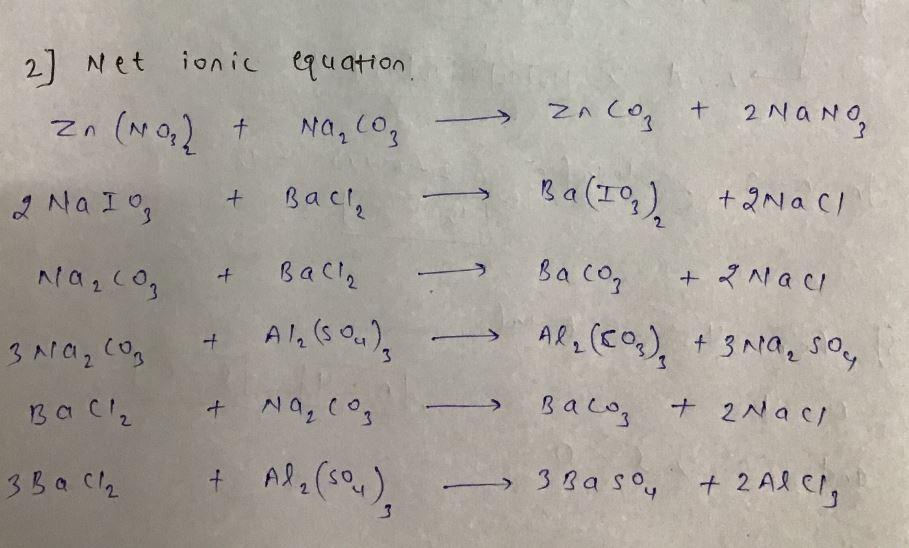 2] Net ionic equation.
Zn (NO₃)₂ + Na₂CO₃ ⟶ ZnCO₃ + 2NaNO₃
2NaIO₃ + BaCl₂ ⟶ Ba(IO₃)₂ + 2NaCl
Na₂CO₃ + BaCl₂ ⟶ BaCO₃ + 2NaCl
3Na₂CO₃ + Al₂(SO₄)₃ ⟶ Al₂(CO₃)₃ + 3Na₂SO₄
BaCl₂ + Na₂CO₃ ⟶ BaCO₃ + 2NaCl
3BaCl₂ + Al₂(SO₄)₃ ⟶ 3BaSO₄ + 2AlCl₃